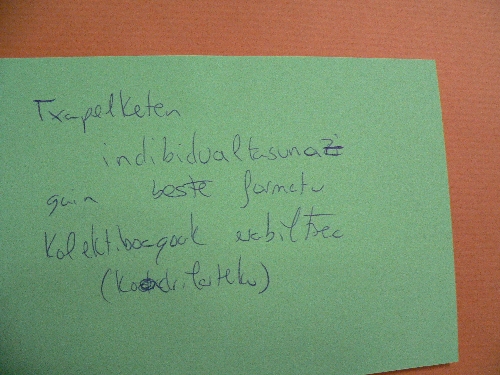 Txapelketen
indibidualtasunaz
gain beste formatu
kolektiboagoak erabiltzea
(Koadrilarteko)